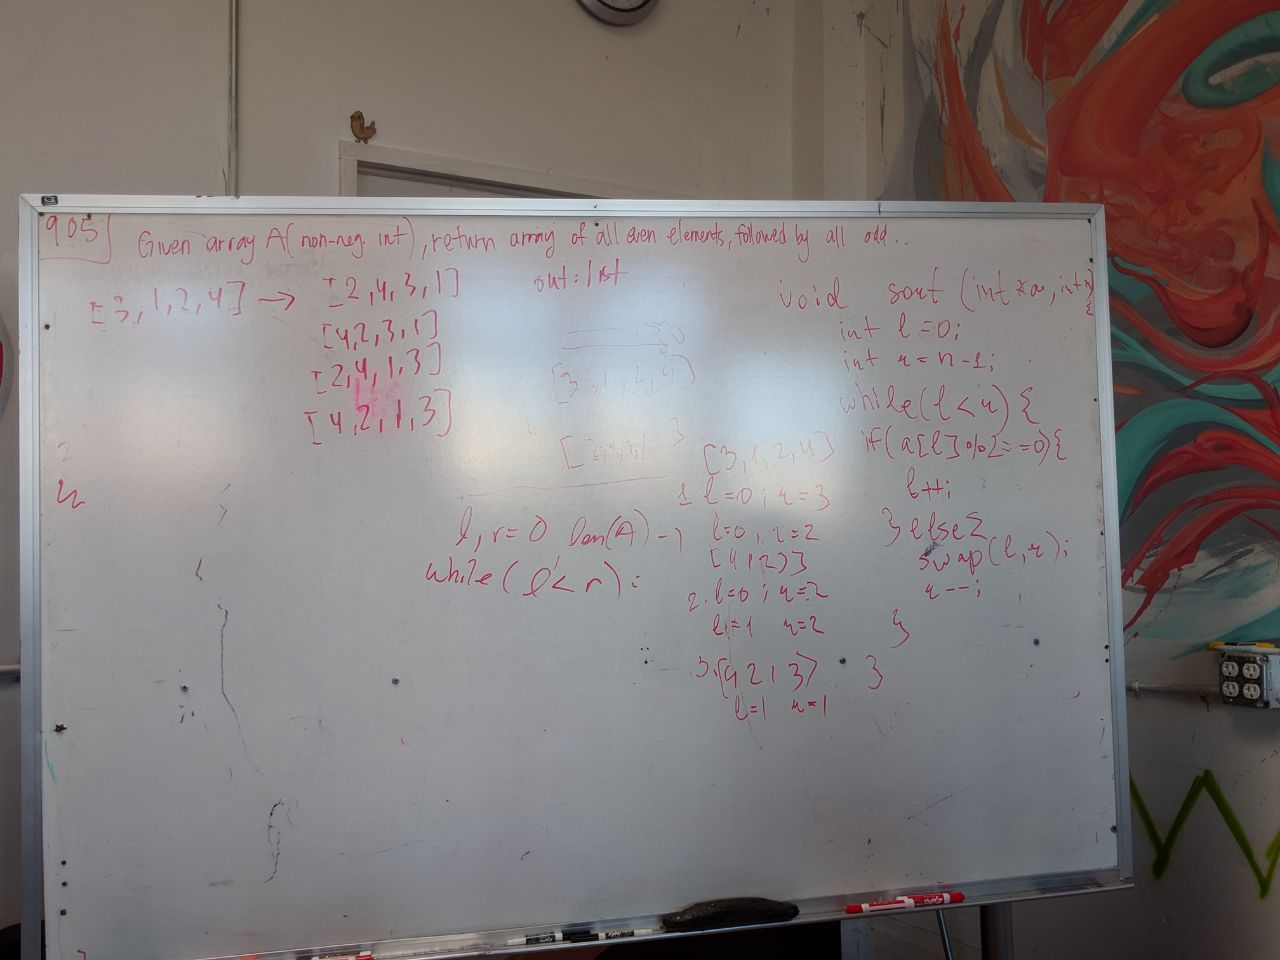 905] Given array A(non-neg. int), return array of all even elements, followed by all odd..
[3,1,2,4] → [2,4,3,1]
[4,2,3,1]
[2,4,1,3]
[4,2,1,3]
out: list
[3,1,2,4]
l, r=0 len(A)-1
while(l<r):
[3,1,2,4]
1 l=0; r=3
l=0, r=2
2. l=0; r=2
l=1 r=2
3. [4 2 1 3]
l=1 r=1
void sort (int *a, int n)
{
int l=0;
int r=n-1;
while(l<r) {
if(a[l]%2==0){
l++;
} else {
swap(l,r);
r--;
}
}